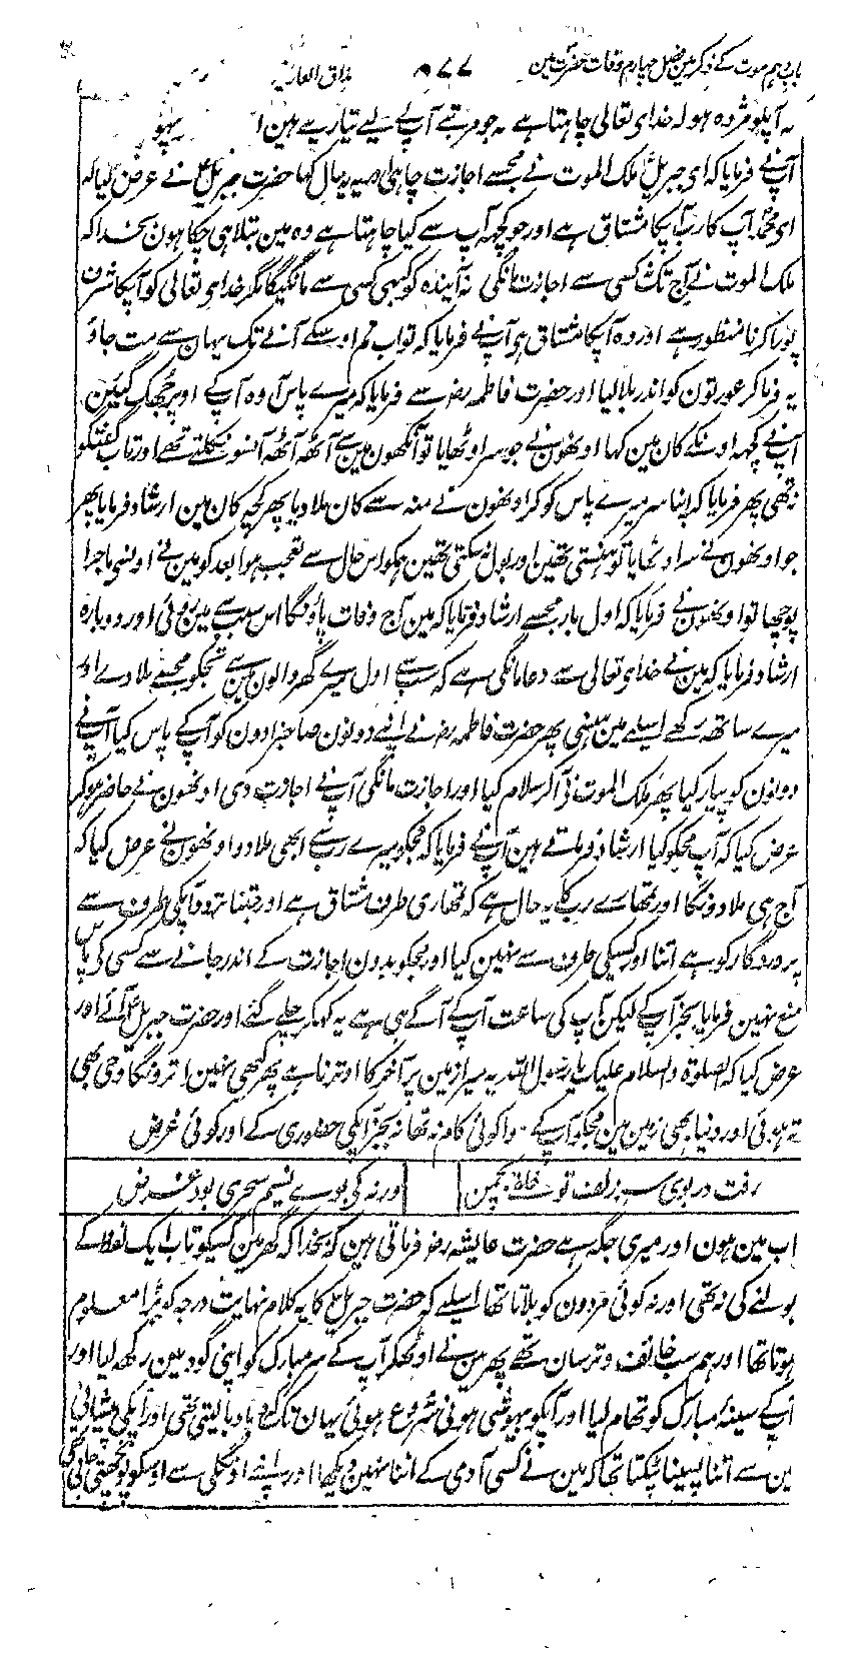 باب دہم موت کے ذکر مین فصل چہارم وفات حضرت مین ۸۷۷ مذاق العارفین
آپکو مژدہ ہو کہ خدای تعالی چاہتا ہے جو مرتبے آپ کے لیے تیار ہے ہین
آپنے فرمایا کہ ای جبریل ملک الموت نے مجھسے اجازت چاہی اور یہ حال کہا حضرت جبریل نے عرض کیا کہ
ای محمد آپ کا رب آپکا مشتاق ہے اور جو کچھ آپ سے کیا چاہتا ہے وہ مین بتلا ہی چکا ہون بخدا کہ
ملک الموت نے آج تک کسی سے اجازت مانگی نہ آیندہ کو کبھی کسی سے مانگیگا مگر خدای تعالی کو آپکا شرف
پورا کرنا منظور ہے اور وہ آپکا مشتاق ہی آپنے فرمایا کہ تو اب تم اوسکے آنے تک یہان سے مت جاؤ
یہ فرما کر عورتون کو اندر بلا لیا اور حضرت فاطمہ رضہ سے فرمایا کہ میرے پاس آ وہ آپ کے اوپر جھک گئین
آپنے کچھ اونکے کان مین کہا اونھون نے جو سر اوٹھایا تو آنکھون مین سے آٹھہ آٹھہ آنسو نکلتے تھے اور تاب گفتگو
نتھی پھر فرمایا کہ اپنا سر میرے پاس کو کر اونھون نے منہ سے کان ملا دیا پھر کچھ کان مین ارشاد فرمایا پھر
جو اونھون نے سر اوٹھایا تو ہنستی تھین اور بول نہ سکتی تھین ہمکو اس حال سے تعجب ہوا بعد کو مین نے اونسی ماجرا
پوچھا تو اونھون نے فرمایا کہ اول بار مجھسے ارشاد فرمایا کہ مین آج وفات پاؤنگا اس سبب سے مین روئی اور دوبارہ
ارشاد فرمایا کہ مین نے خدای تعالی سے دعا مانگی ہے کہ سب سے اول میرے گھر والون مین سے تجکو مجھسے ملا دے اور
میرے ساتھہ رکھے اسلیے مین ہنسی پھر حضرت فاطمہ رضہ نے اپنے دونون صاحبزادون کو آپ کے پاس کیا آپنے
دونون کو پیار کیا پھر ملک الموت نے آکر سلام کیا اور اجازت مانگی آپ نے اجازت دی اونھون نے حاضر ہوکر
عرض کیا کہ آپ مجکو کیا ارشاد فرماتے ہین آپنے فرمایا کہ مجکو میرے رب سے ابھی ملا دو اونھون نے عرض کیا کہ
آج ہی ملا دونگا اور تمھارے رب کا یہ حال ہے کہ تمھاری طرف مشتاق ہے اور جتنا تردد آپکی طرف سے
پروردگار کو ہے اتنا اور کسیکی طرف سے نہین کیا اور مجکو بدون اجازت کے اندر جانے سے کسی کے پاس
منع نہین فرمایا بجز آپ کے لیکن آپ کی ساعت آپ کے آگے ہی ہے یہ کہکر چلے گئے اور حضرت جبریل آئے اور
عرض کیا کہ الصلوۃ والسلام علیک یا رسول اللہ یہ میرا زمین پر آخر کا اوترنا ہے پھر کبھی نہین اترونگا وحی بھی
تہ ہوئی اور دنیا بھی زمین مین مجکو آپ کے سوا کوئی کام نہ تھا نہ بجز آپکی حضوری کے اور کوئی غرض
رفت در بوی سر زلف تو بچمن ورنہ کی بوے نسیم سحری بود غرض
اب مین ہون اور میری جگہ ہے حضرت عایشہ رضہ فرماتی ہین کہ بخدا کہ گھر مین کسیکو تاب ایک لفظ کے
بولنے کی نہ تھی اور نہ کوئی مردون کو بلاتا تھا اسلیے کہ حضرت جبریل کا یہ کلام نہایت درجہ کو بڑا معلوم
ہوتا تھا اور ہم سب خائف و ترسان تھے پھر مین نے اوٹھکر آپ کے سر مبارک کو اپنی گود مین رکھہ لیا اور
آپ کے سینۂ مبارک کو تھام لیا اور آپکو بیہوشی ہونی شروع ہوئی یہان تک کہ دبا دبا لیتی تھی اور آپکی پیشانی
مین سے اتنا پسینا ٹپکتا تھا کہ مین نے کسی آدمی کے اتنا نہین دیکھا اور اپنے اونگلی سے اوسکو پونچھتی جاتی تھی